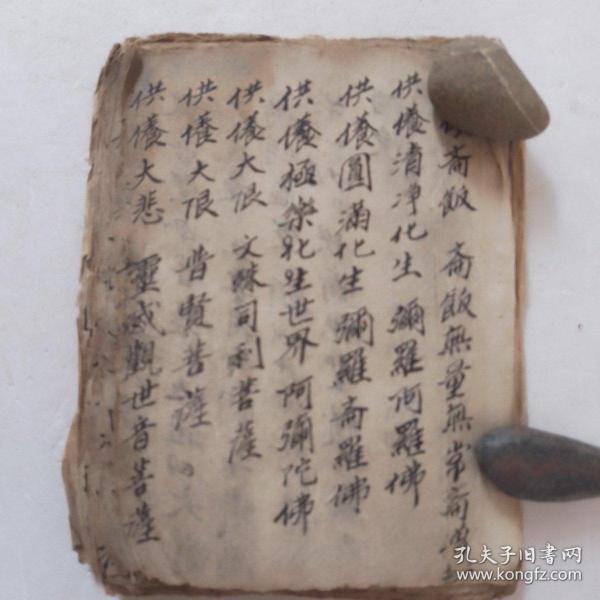 斋飯 斋飯無量無岸斋
供儀清净化生 彌羅阿羅佛
供儀圓滿化生 彌羅斋羅佛
供儀極樂化生世界 阿彌陀佛
供儀大限 文殊司利菩薩
供儀大限 普賢菩薩
供儀大悲 靈感觀世音菩薩
孔夫子旧书网
www.kongfz.com